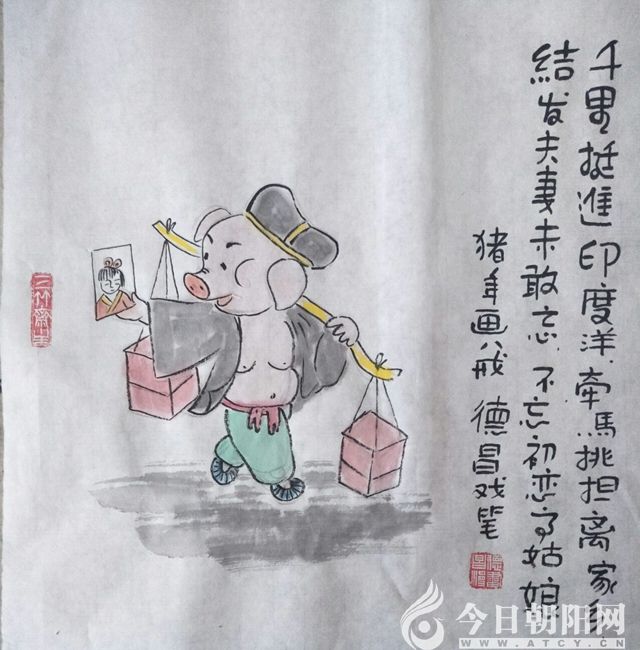 千里挺進印度洋.牵馬挑担离家乡
結发夫妻未敢忘.不忘初恋高姑娘
猪年画八戒 德昌戏笔
今日朝阳网
WWW.ATCY.CN